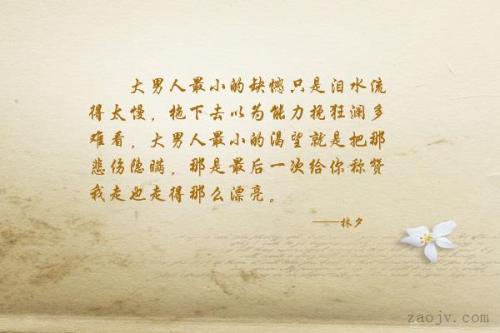 大男人最小的缺憾只是泪水流
得太慢，拖下去以为能力挽狂澜多
难看，大男人最小的渴望就是把那
悲伤隐瞒，那是最后一次给你称赞
我走也走得那么漂亮。
——林夕
zaojv.com